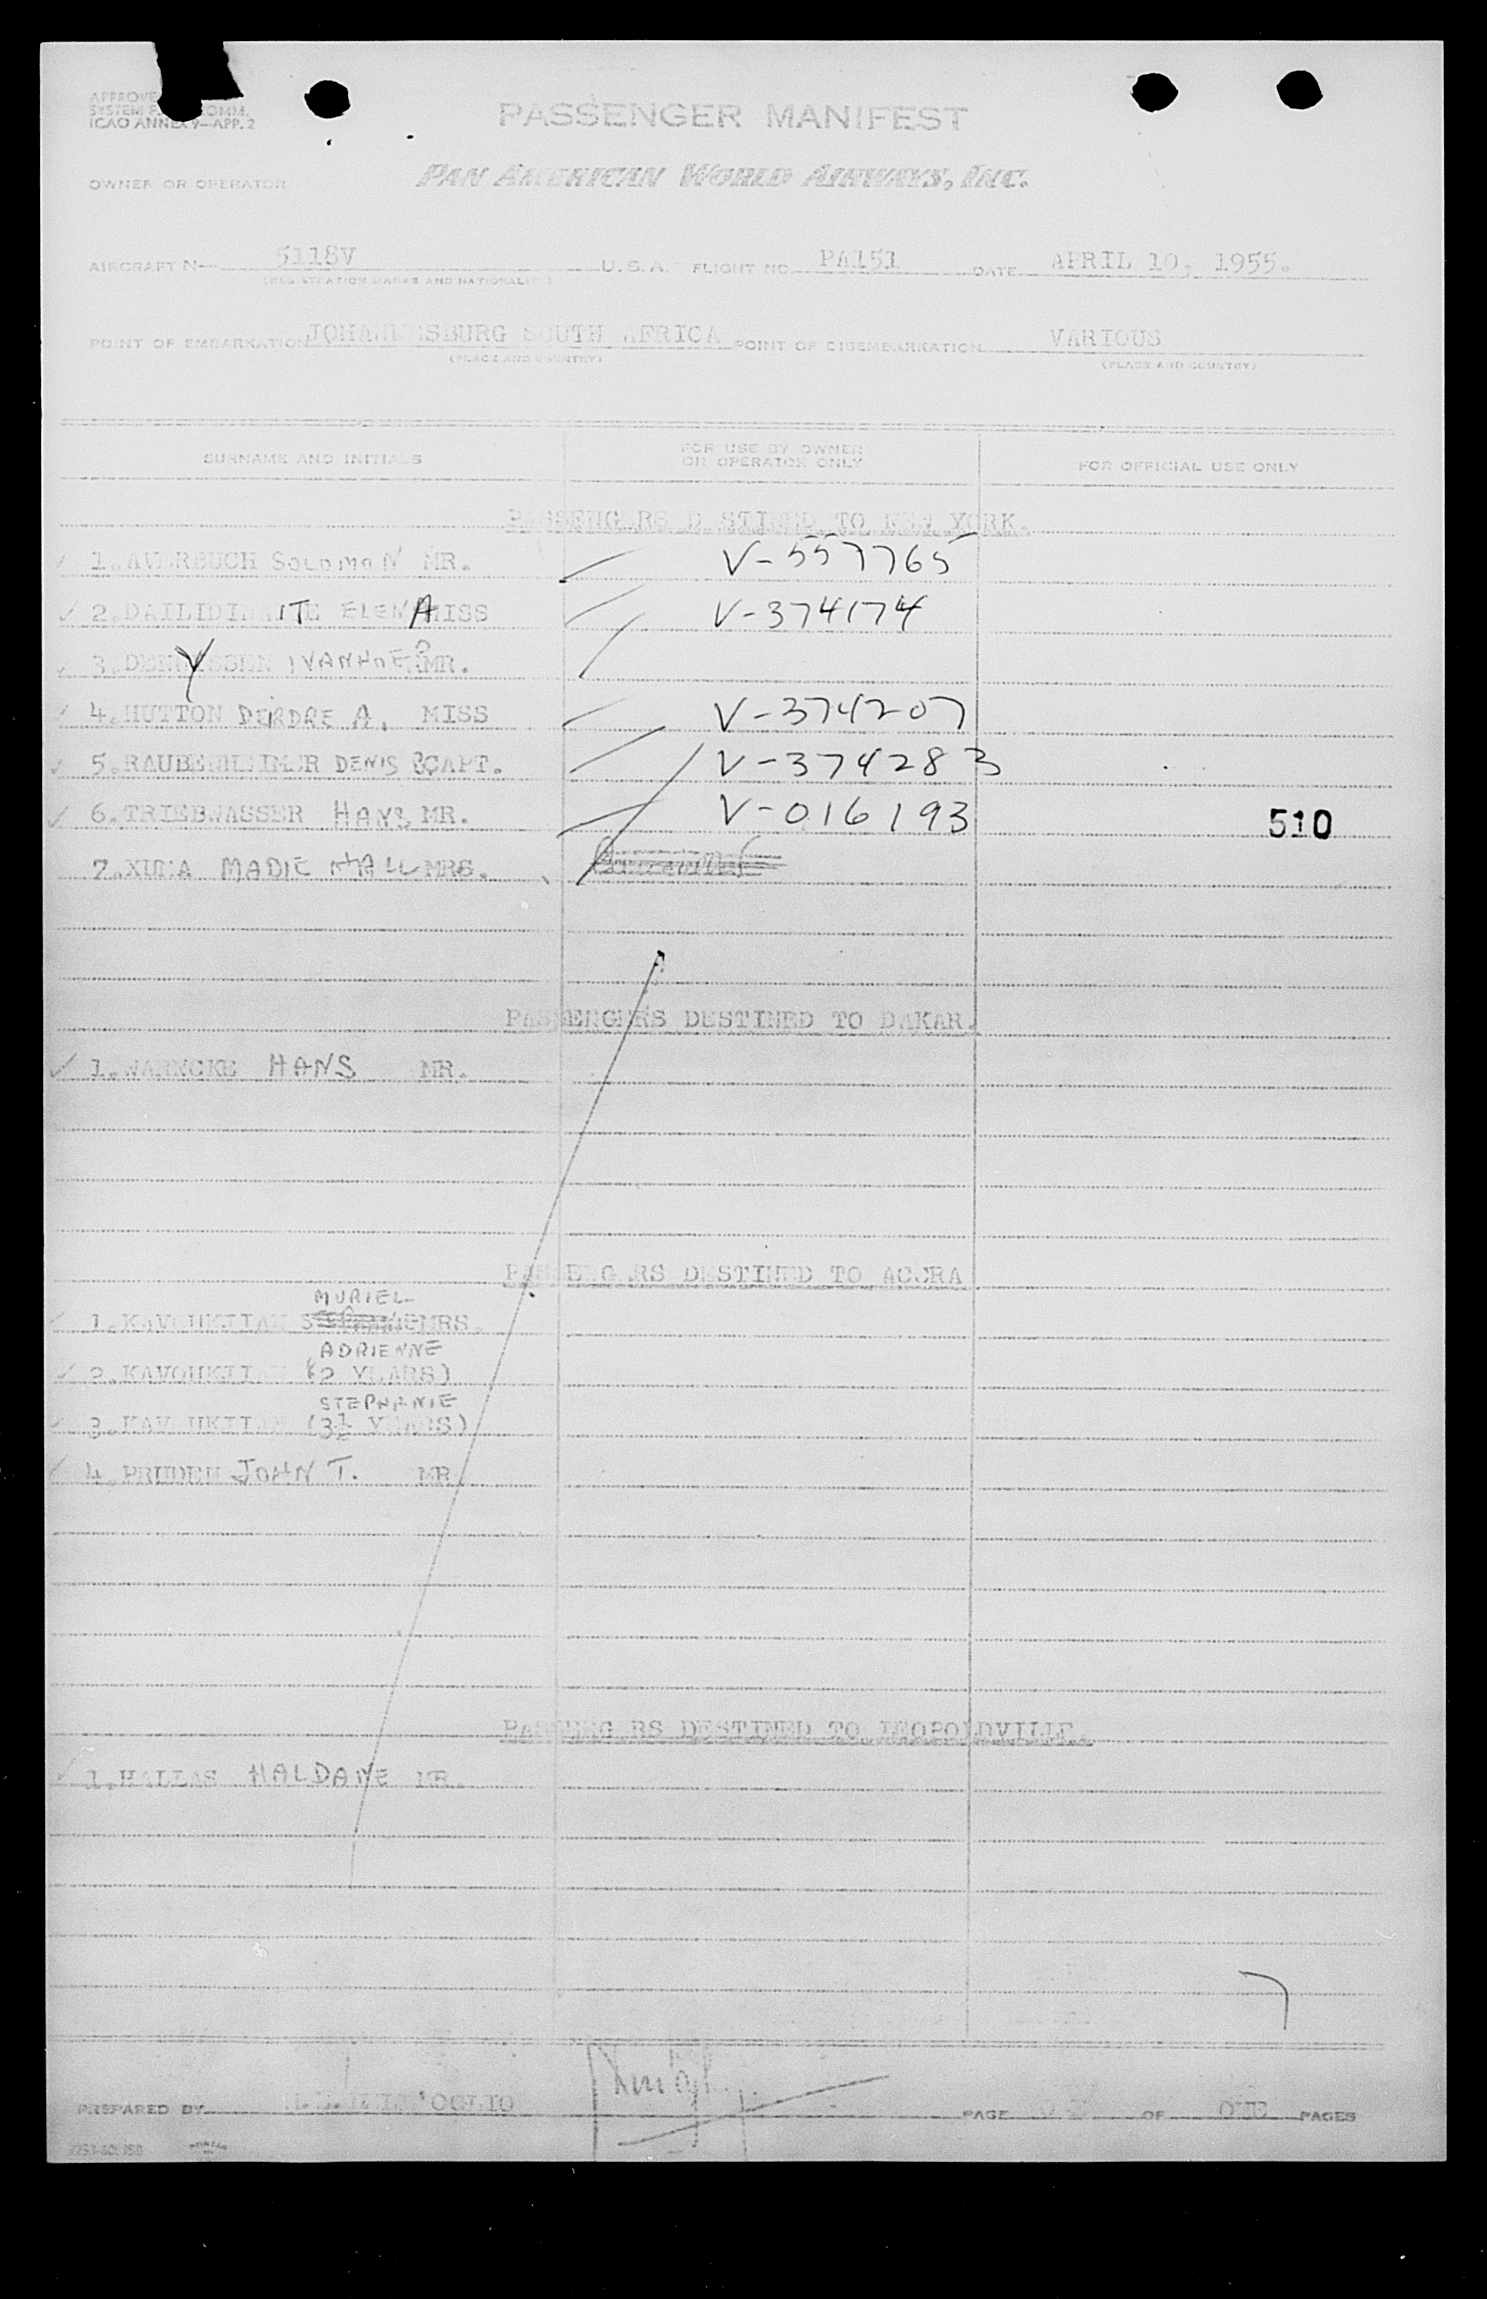 PASSENGER MANIFEST
ICAO ANNEX 9—APP. 2
OWNER OR OPERATOR PAN AMERICAN WORLD AIRWAYS, INC.
AIRCRAFT N— 5118V U.S.A. FLIGHT NO. PA151 DATE APRIL 10, 1955.
(REGISTRATION MARKS AND NATIONALITY)
POINT OF EMBARKATION JOHANNESBURG SOUTH AFRICA POINT OF DISEMBARKATION VARIOUS
(PLACE AND COUNTRY) (PLACE AND COUNTRY)
SURNAME AND INITIALS FOR USE BY OWNER OR OPERATOR ONLY FOR OFFICIAL USE ONLY
PASSENGERS DESTINED TO NEW YORK.
1. AVERBUCH SOLOMON MR. V-557765
2. ELENA MISS V-374174
3. IVANHOE MR.
4. HUTTON DEIRDRE A. MISS V-374207
5. RAUBENHEIMER DENIS CAPT. V-374283
6. TRIEBWASSER HANS MR. V-016193 510
7. XUMA MADIE HALL MRS.
PASSENGERS DESTINED TO DAKAR.
1. WARNCKE HANS MR.
PASSENGERS DESTINED TO ACCRA
MURIEL
1. KAVOUKJIAN MRS.
ADRIENNE
2. KAVOUKJIAN (2 YEARS)
STEPHANIE
3. KAVOUKJIAN (3½ YEARS)
4. PRUDEN JOHN T. MR.
PASSENGERS DESTINED TO LEOPOLDVILLE.
1. HALLAS HALDANE MR.
7
PREPARED BY PAGE OF ONE PAGES